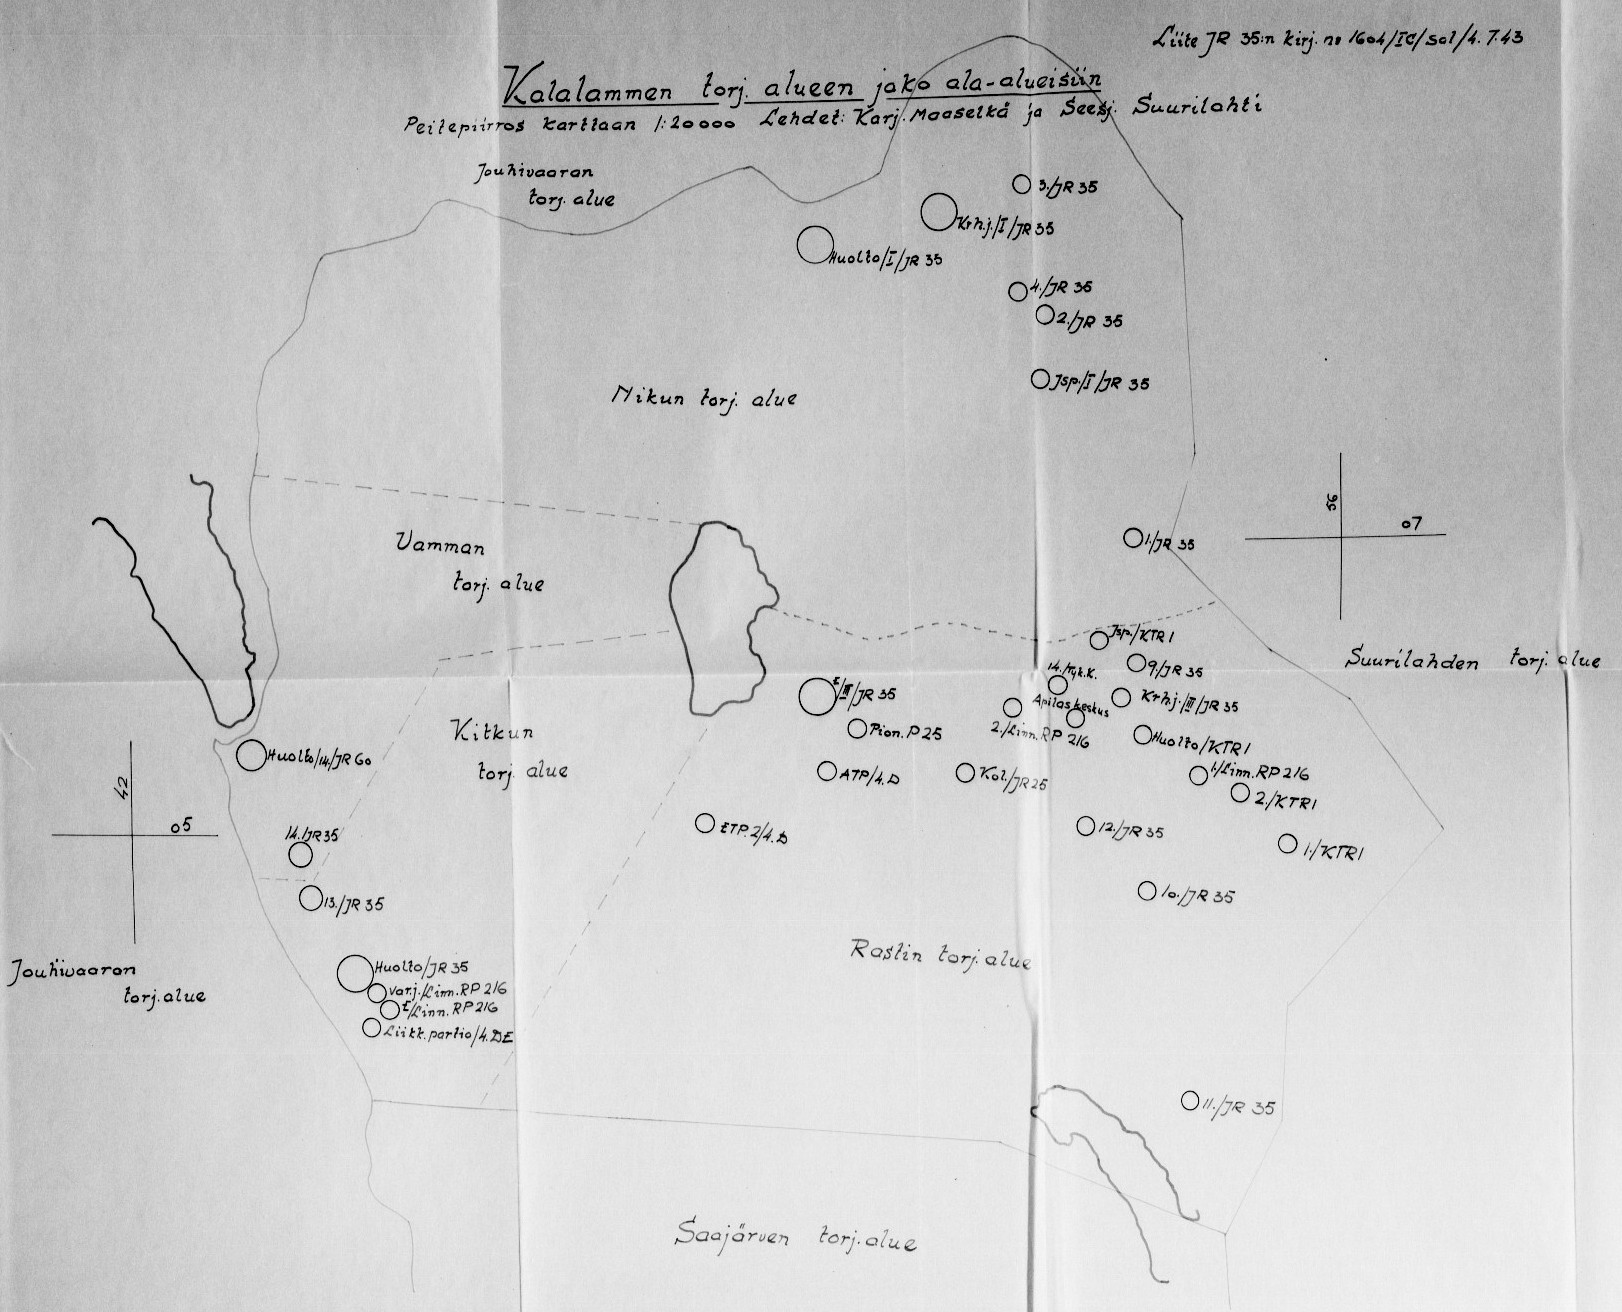 Liite JR 35:n kirj. no 1604/IC/sal/4.7.43
Kalalammen torj. alueen jako ala-alueisiin
Peitepiirros karttaan 1:20000 Lehdet: Karj. Maaselkä ja Seesj. Suurilahti
Jouhivaaran
torj. alue
3./JR 35
Krh.j./I/JR 35
Huolto/I/JR 35
4./JR 35
2./JR 35
Jsp./I/JR 35
Nikun torj. alue
56
07
1./JR 35
Vamman
torj. alue
Jsp./KTR 1
9./JR 35
Suurilahden torj. alue
14./Tyk.K.
E/III/JR 35
Krh.j./III/JR 35
Apilaskeskus
2./Linn.RP 216
Pion. P 25
Huolto/KTR1
Kitkun
torj. alue
Huolto/14./JR 60
ATP/4.D
Kol./JR25
1./Linn.RP 216
2./KTR1
42
05
14./JR35
ETP. 2/4.D
12./JR 35
1./KTR1
13./JR 35
10./JR 35
Rastin torj. alue
Jouhivaaran
torj. alue
Huolto/JR 35
Varj./Linn.RP 216
E/Linn. RP 216
Liikk. partio/4.DE
11./JR 35
Saajärven torj. alue